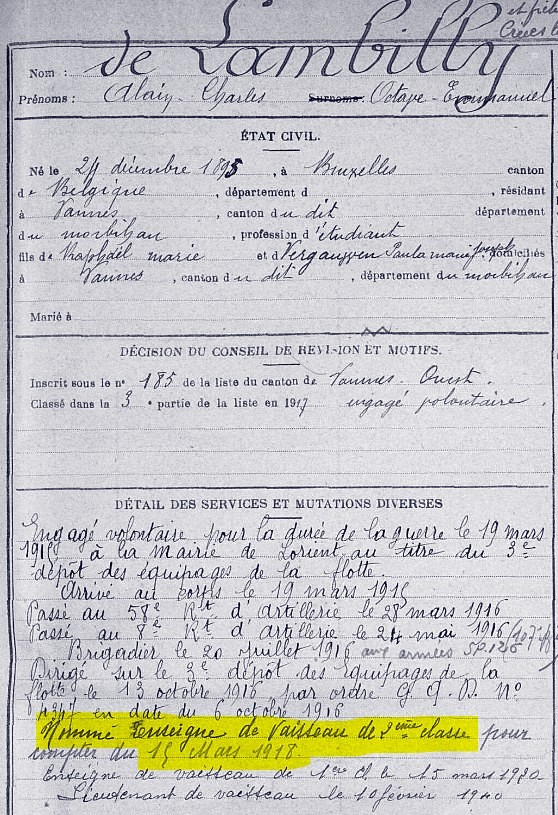 et
de Lambilly
Nom :
Prénoms : Alain Charles Surnoms: Octave - Emmanuel
ÉTAT CIVIL.
Né le 24 décembre 1895, à Bruxelles canton
de Belgique, département d , résidant
à Vannes, canton du dit département
du morbihan, profession d'étudiant
fils de Raphaël marie et d Paula domiciliés
à Vannes, canton du dit, département du morbihan
Marié à
DÉCISION DU CONSEIL DE REVISION ET MOTIFS.
Inscrit sous le n° 185 de la liste du canton de Vannes - Ouest.
Classé dans la 3e partie de la liste en 1917 engagé volontaire.
DÉTAIL DES SERVICES ET MUTATIONS DIVERSES
Engagé volontaire pour la durée de la guerre le 19 mars
1915 à la mairie de Lorient au titre du 3e
dépôt des équipages de la flotte.
Arrivé au corps le 19 mars 1915
Passé au 58e Rgt d'Artillerie le 28 mars 1916
Passé au 8e Rgt d'Artillerie le 24 mai 1916
Brigadier le 20 juillet 1916 aux armées
Dirigé sur le 3e dépôt des Equipages de la
flotte le 13 octobre 1916 par ordre G. Q. G. N°
en date du 6 octobre 1916
Nommé Enseigne de Vaisseau de 2eme classe pour
compter du 15 Mars 1918
Enseigne de vaisseau de 1ere cl. le 15 mars 1920
Lieutenant de vaisseau le 10 février 1940